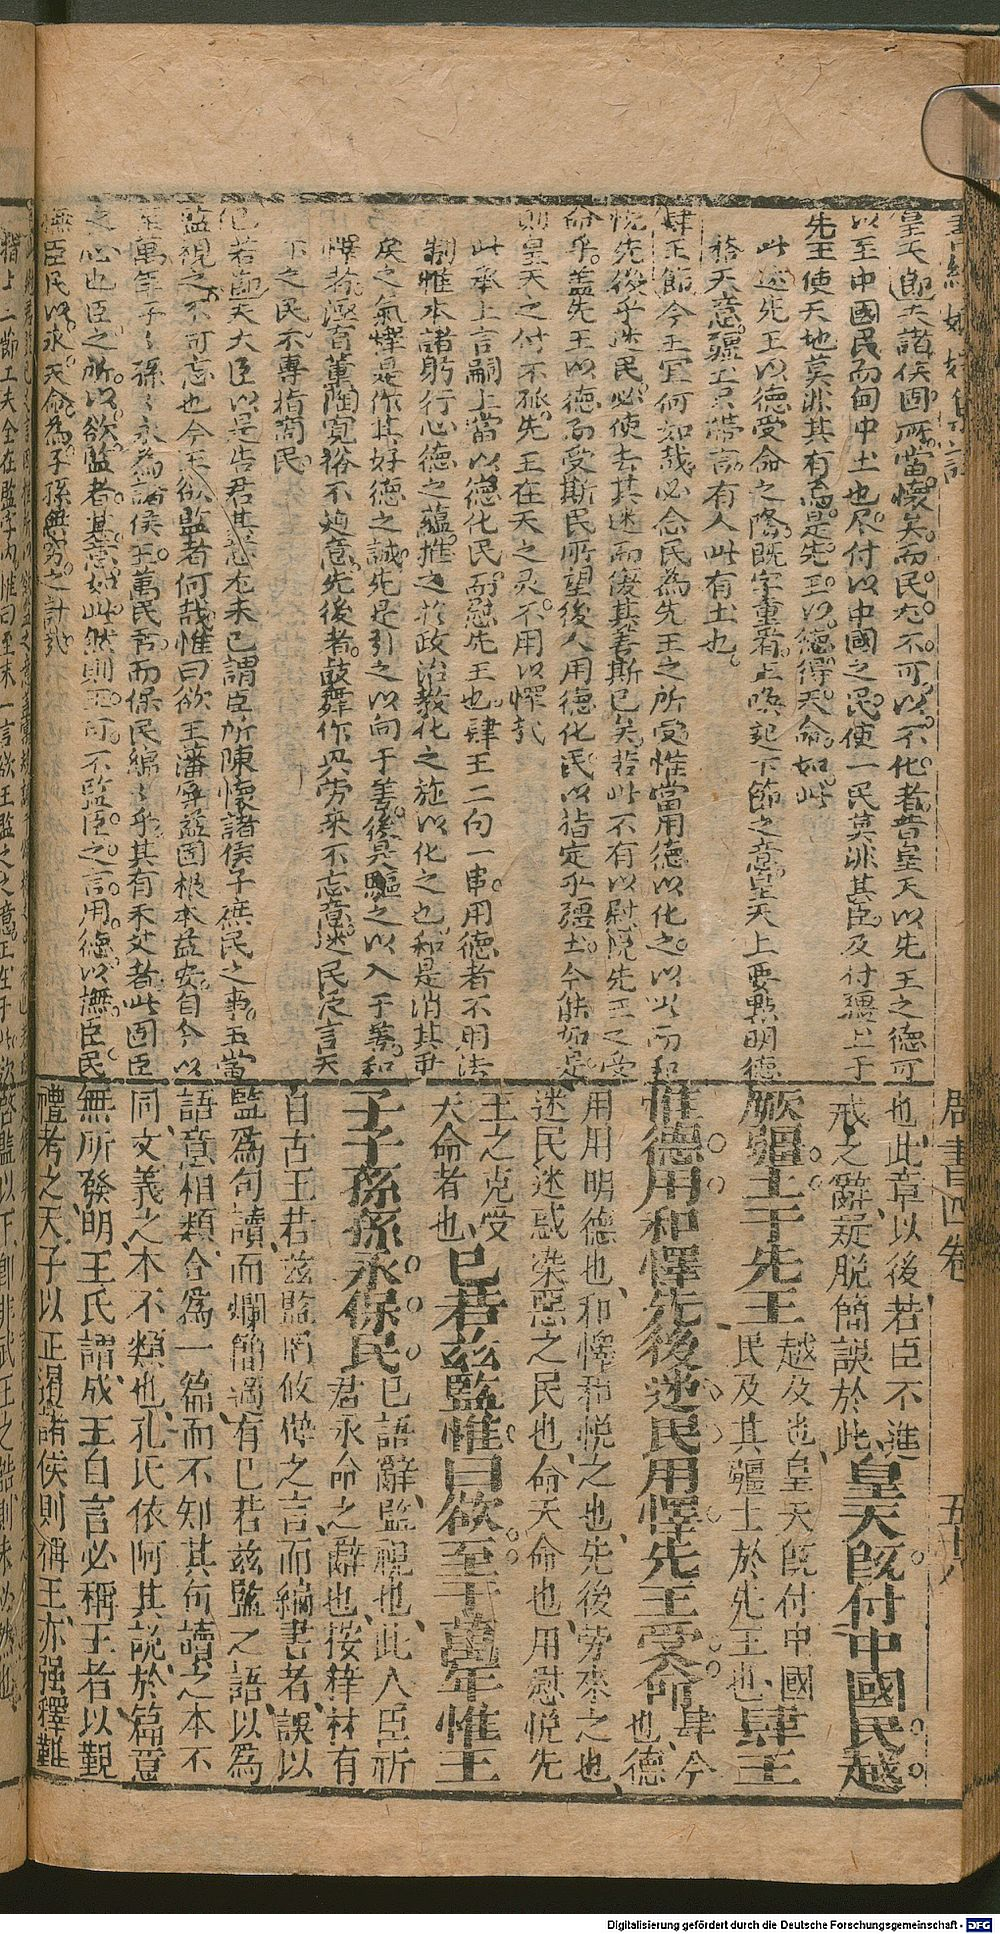 皇天節夫諸侯固所當懷矣而民尤不可以不化者昔皇天以先王之德可
以至中國民而甸中土也尽付以中國之民使一民莫非其臣及付疆土于
先王使天地莫非其有焉是先王以德得天命如此
此述先王以德受命之隆既字重看正喚起下節之意皇天上要點明德
格天意疆土只帶言有人此有土也
肆王節今王宜何如哉必念民為先王之所受惟當用德以化之以此而和
悅先後乎迷民必使去其迷而復其善斯已矣若此不有以慰悅先王之受
命乎蓋先王以德而受斯民所望後人用德化民以指定乎疆土今能如是
則皇天之付不孤先王在天之灵不用以懌哉
此承上言嗣王當以德化民而慰先王也肆王二句一串用德者不用法
制惟本諸躬行心德之蘊推之於政治教化之施以化之也和是消其乖
戾之氣懌是作其好德之誠先是引之以向于善後是驅之以入于善和
懌若涵育薰陶寬裕不廹意先後若鼓舞作興勞來不忘意迷民泛言天
下之民不專指商民
已若茲節夫大臣以是告君其意尤未已謂臣所陳懷諸侯子庶民之事王當
監視之不可忘也今臣欲監者何哉惟曰欲王藩屏益固根本益安自今以
至萬年子〻孫〻永為諸侯王萬民而保民綿〻乎其有禾艾者此固臣
之心也臣之所以欲監者其意如此然則王可不監臣之言用德以撫臣民
撫臣民以永天命為子孫無穷之計哉
周書四卷 五十八
也此章以後若臣不進
戒之辭疑脫簡誤於此
皇天既付中國民越
厥疆土于先王
越及也皇天既付中國
民及其疆土於先王也
肆王
惟德用和懌先後迷民用懌先王受命
肆今
也德
用用明德也和懌和悅之也先後勞來之也
迷民迷惑染惡之民也命天命也用慰悅先
王之克受
天命者也
已若茲監惟曰欲至于萬年惟王
子子孫孫永保民
已語辭監視也此人臣祈
君永命之辭也按梓材有
自古王君茲監罔攸僻之言而編書者誤以
監為句讀而爛簡適有已若茲監之語以為
語意相類合為一篇而不知其句讀之本不
同文義之本不類也孔氏依阿其說於篇意
無所發明王氏謂成王自言必稱王者以覲
禮考之天子以正遏諸侯則稱王亦强釋難